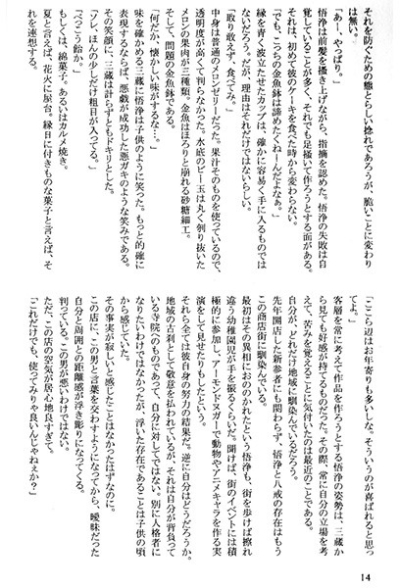 それを防ぐための飴とらしい捻れであろうが、脆いことに変わり
は無い。
「あー、やっぱり」
悟浄は前髪を掻き上げながら、指摘を認めた。悟浄の失敗は自
覚していることが多く、それでも足掻いて作ろうとする面がある。
それは、初めて彼のケーキを食べた時から変わらない。
「でも、こっちの金魚鉢は諦めたくねーんだよなぁ。」
縁を青く波立たせたカップは、確かに容易く手に入るものでは
ないだろう。だが、理由はそれだけではないらしい。
「取り敢えず、食ってみ。」
中身は普通のメロンゼリーだった。果汁そのものを使っているので、
透明度が高くて判らなかった。水底のビー玉は丸く刳り抜いた
メロンの果肉が三種類。金魚はほろりと崩れる砂糖細工。
そして、問題の金魚鉢である。
「何だか、懐かしい味がするな…。」
味を確かめる三蔵に悟浄は子供のように笑った。もっと的確に
表現するならば、悪戯が成功した悪ガキのような笑みである。
その笑顔に、三蔵は計らずともドキリとした。
「ソレほんの少しだけ粗目が入ってる。」
「べっこう飴か。」
もしくは、綿菓子、あるいはカルメ焼き。
夏と言えば、花火に屋台。縁日に付きものな菓子と言えば、そ
れを連想する。
「ここら辺はお年寄りも多いしな。そういうのが喜ばれると思っ
てよ。」
客層を常に考えて作品を作ろうとする悟浄の姿勢は、三蔵か
ら見ても好感が持てるものだった。その際、常に自分の立場を考
えて、苦みを覚えることに気付いたのは最近のことである。
自分が、どれだけ地域に馴染んでいるだろう。
先年開店した新参者にも関わらず、悟浄と八戒の存在はもう
この商店街に馴染んでいる。
最初はその異相におののかれたという悟浄も、街を歩けば擦れ
違う幼稚園児が手を振るくらいだ。聞けば、街のイベントには積
極的に参加し、アーモンドヌガーで動物やアニメキャラを作る実
演をして見せたりもしたという。
それら全ては彼自身の努力の結果だ。逆に自分はどうだろうか。
地域の古刹として敬意を払われているが、それは自分が背負って
いる寺院へのものであって、自分に対してではない。別に人格者に
なりたいわけではなかったが、浮いた存在であることは子供の頃
から感じていた。
その事実が寂しいと感じたことはなかったはずなのに。
この店に、この男と言葉を交わすようになってから、曖昧だった
自分と周囲との距離感が浮き彫りになってくる。
判っている。この男が悪いわけではない。
ただ、この店の空気が居心地良すぎて。
「これだけでも、使ってみりゃ良いんじゃねぇか?」
14